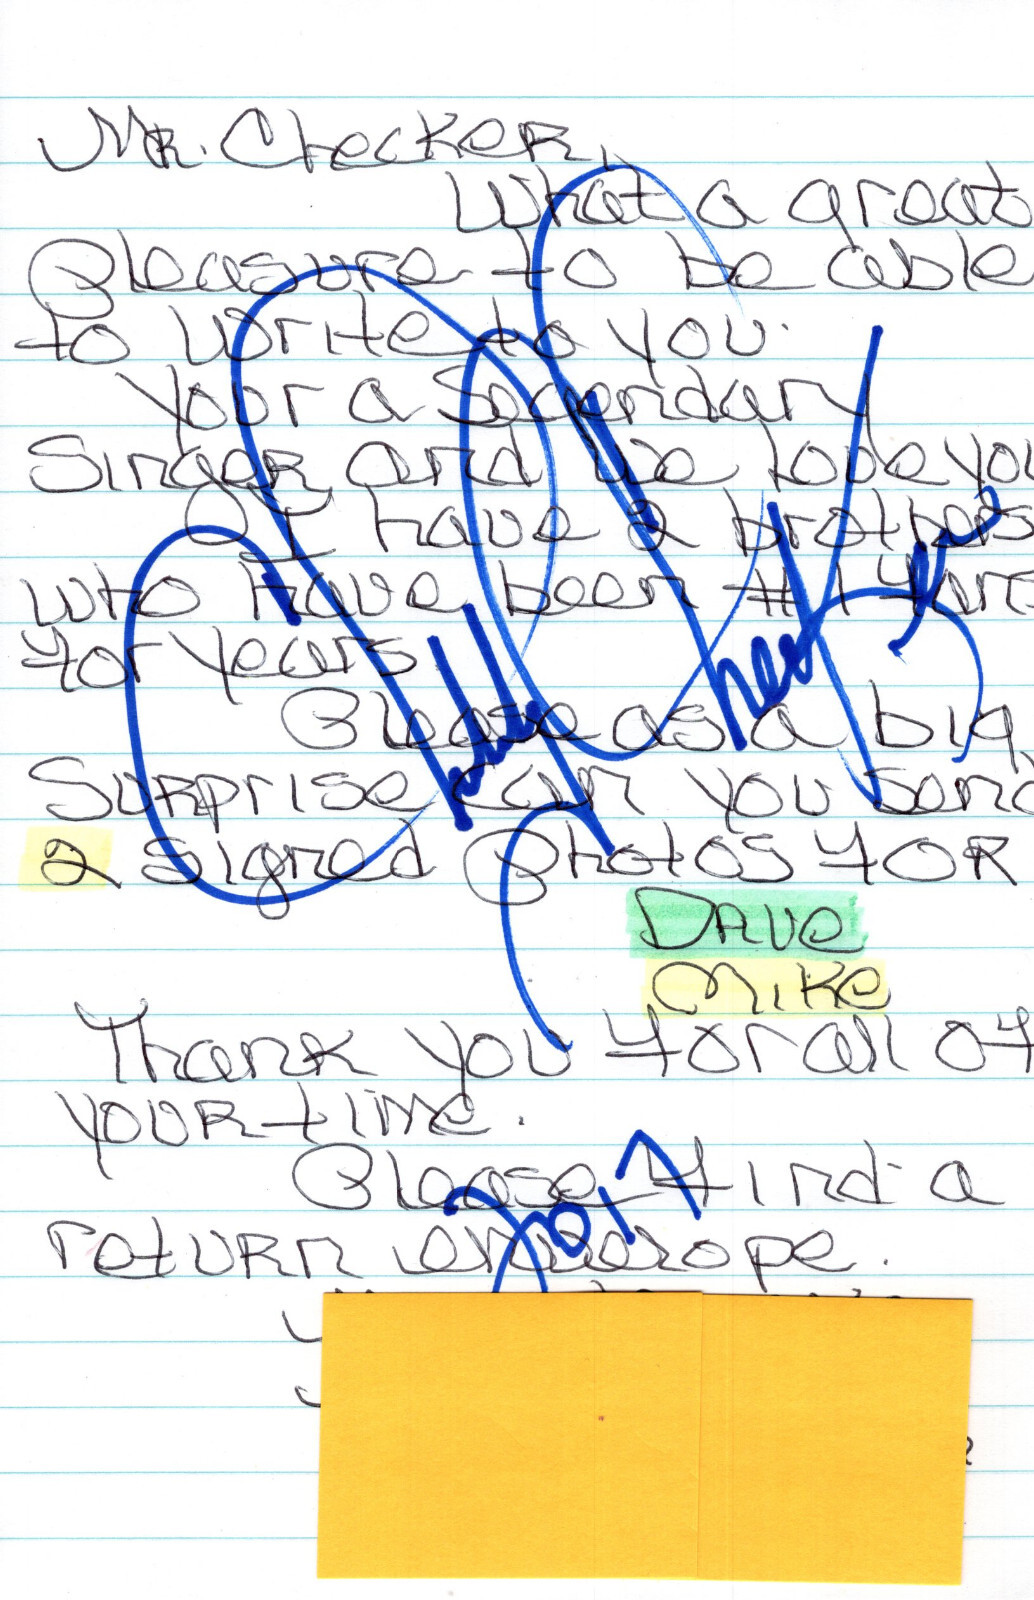 Mr. Checker,
What a great
Pleasure to be able
to write to you.
Your a Secendary
Singer and we love you
I have 2 brothers
who have been #1 Fans
For years
Please as a big
Surprise can you send
2 signed Photos FOR
Dave
Mike
Thank you For all oF
your time.
Please Find a
return envelope.
Chubby Checker